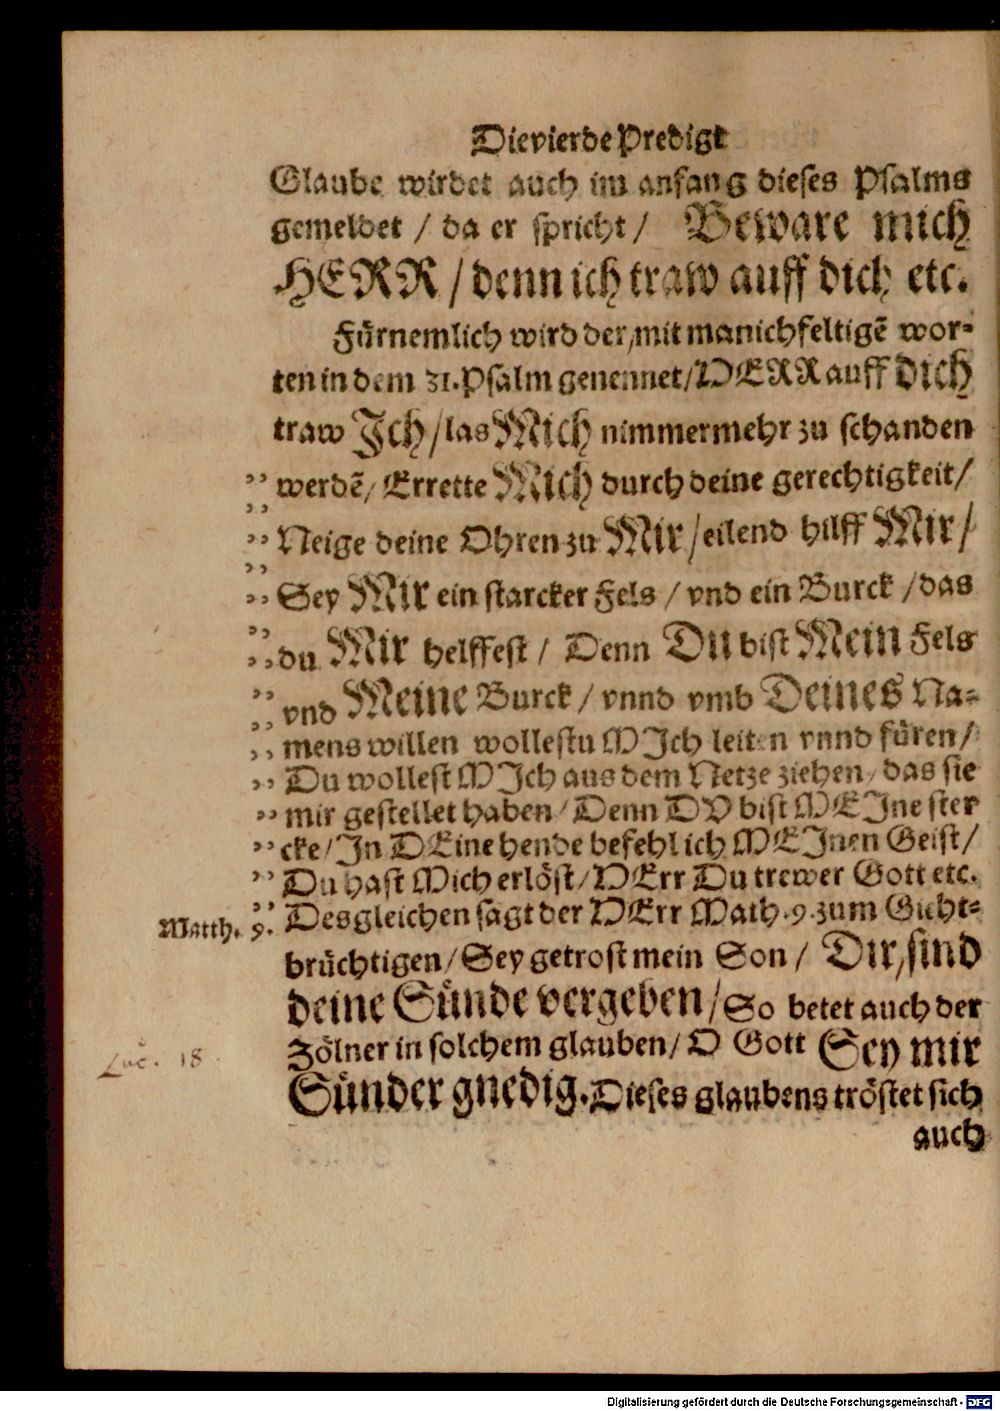 Die vierde Predigt
Glaube wirdet auch im anfang dieses Psalms
gemeldet / da er spricht / Beware mich
HERR / denn ich traw auff dich etc.
Fürnemlich wird der, mit manichfeltigē wor-
ten in dem 31. Psalm genennet / HERR auff dich
traw Jch / las Mich nimmermehr zu schanden
werdē / Errette Mich durch deine gerechtigkeit /
Neige deine Ohren zu Mir / eilend hilff Mir /
Sey Mir ein starcker Fels / vnd ein Burck / das
du Mir helffest / Denn Du bist Mein Fels
vnd Meine Burck / vnnd vmb Deines Na-
mens willen wollestu MJch leiten vnnd füren /
Du wollest MJch aus dem Netze ziehen / das sie
mir gestellet haben / Denn DV bist MEJne ster
cke / Jn DEine hende befehl ich MEJnen Geist /
Du hast Mich erlöst / HErr Du trewer Gott etc.
Matth. 9. Desgleichen sagt der HErr Math. 9. zum Gicht-
brüchtigen / Sey getrost mein Son / Dir, sind
deine Sünde vergeben / So betet auch der
Zölner in solchem glauben / O Gott Sey mir
Luc. 18
Sünder gnedig. Dieses glaubens tröstet sich
auch
Digitalisierung gefördert durch die Deutsche Forschungsgemeinschaft - DFG